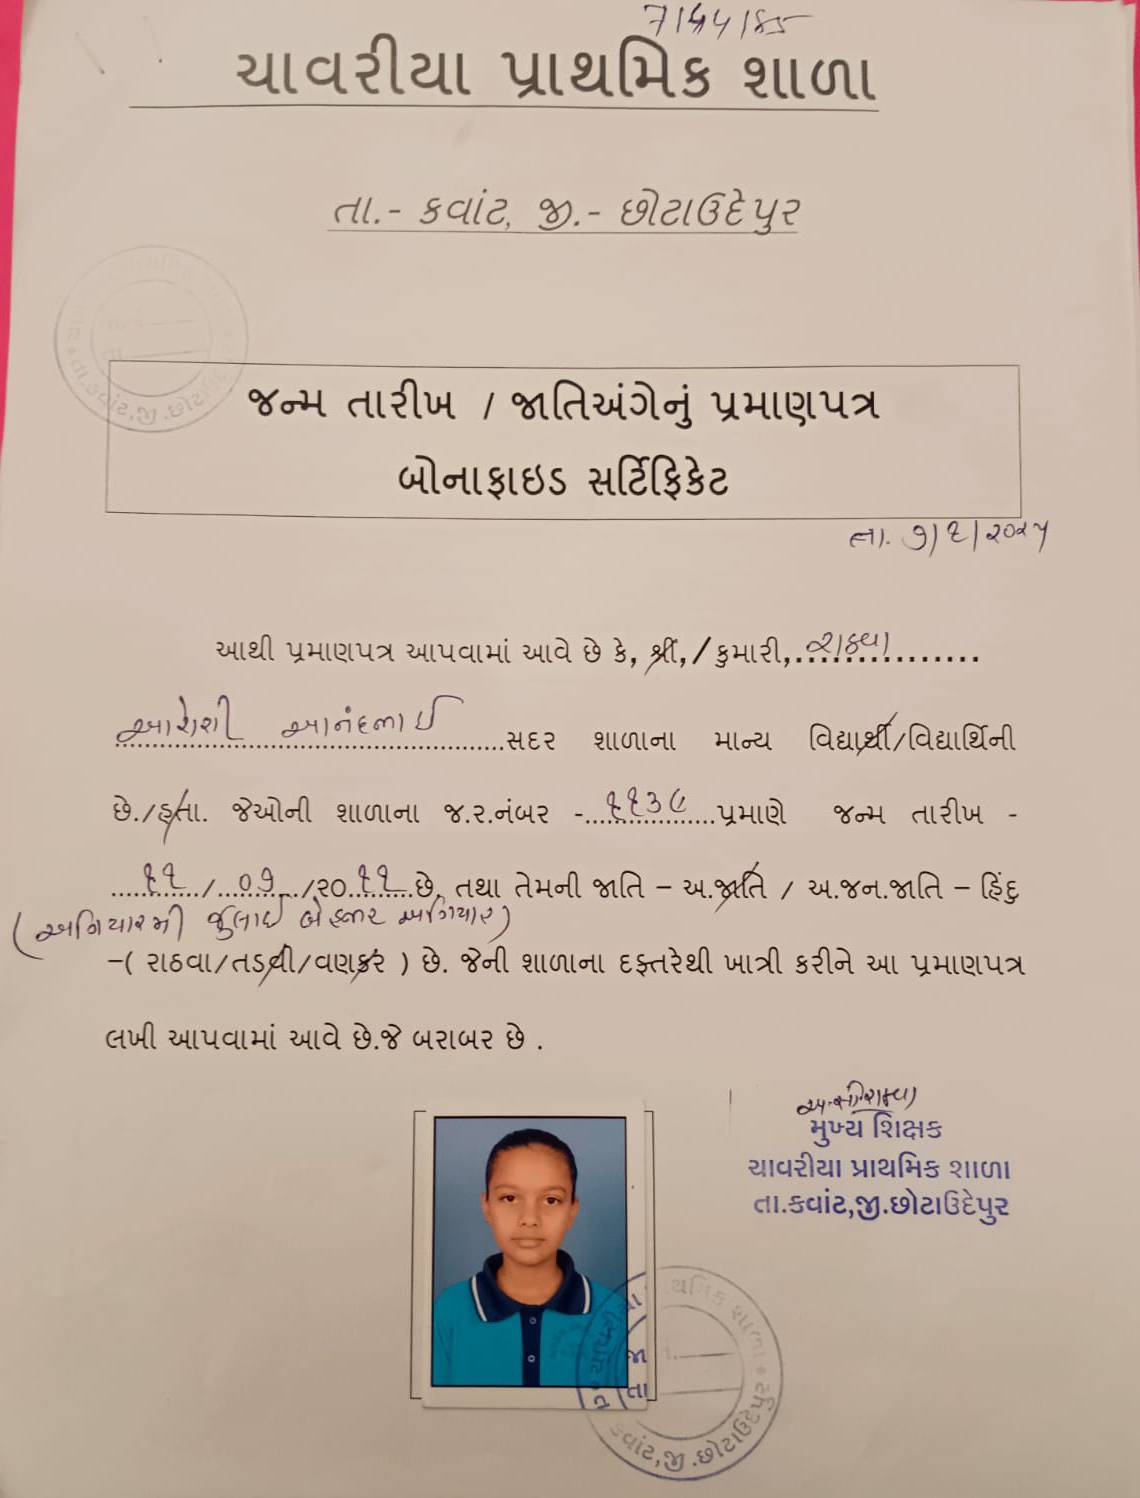 ચાવરીયા પ્રાથમિક શાળા
તા.- કવાંટ, જી.- છોટાઉદેપુર
જન્મ તારીખ / જાતિઅંગેનું પ્રમાણપત્ર
બોનાફાઇડ સર્ટિફિકેટ
તા. ૭/૧/૨૦૨૫
આથી પ્રમાણપત્ર આપવામાં આવે છે કે, શ્રી,/કુમારી,.રાઠવા...............
આરોશી આનંદભાઈ.....સદર શાળાના માન્ય વિદ્યાર્થી/વિદ્યાર્થિની
છે./હતા. જેઓની શાળાના જ.ર.નંબર -..૧૧૩૯..પ્રમાણે જન્મ તારીખ -
....૧૧../..૦૭../૨૦.૧૧..છે, તથા તેમની જાતિ – અ.જાતિ / અ.જન.જાતિ – હિંદુ
(અગિયારમી જુલાઈ બે હજાર અગિયાર)
–( રાઠવા/તડવી/વણકર ) છે. જેની શાળાના દફતરેથી ખાત્રી કરીને આ પ્રમાણપત્ર
લખી આપવામાં આવે છે.જે બરાબર છે .
મુખ્ય શિક્ષક
ચાવરીયા પ્રાથમિક શાળા
તા.કવાંટ,જી.છોટાઉદેપુર